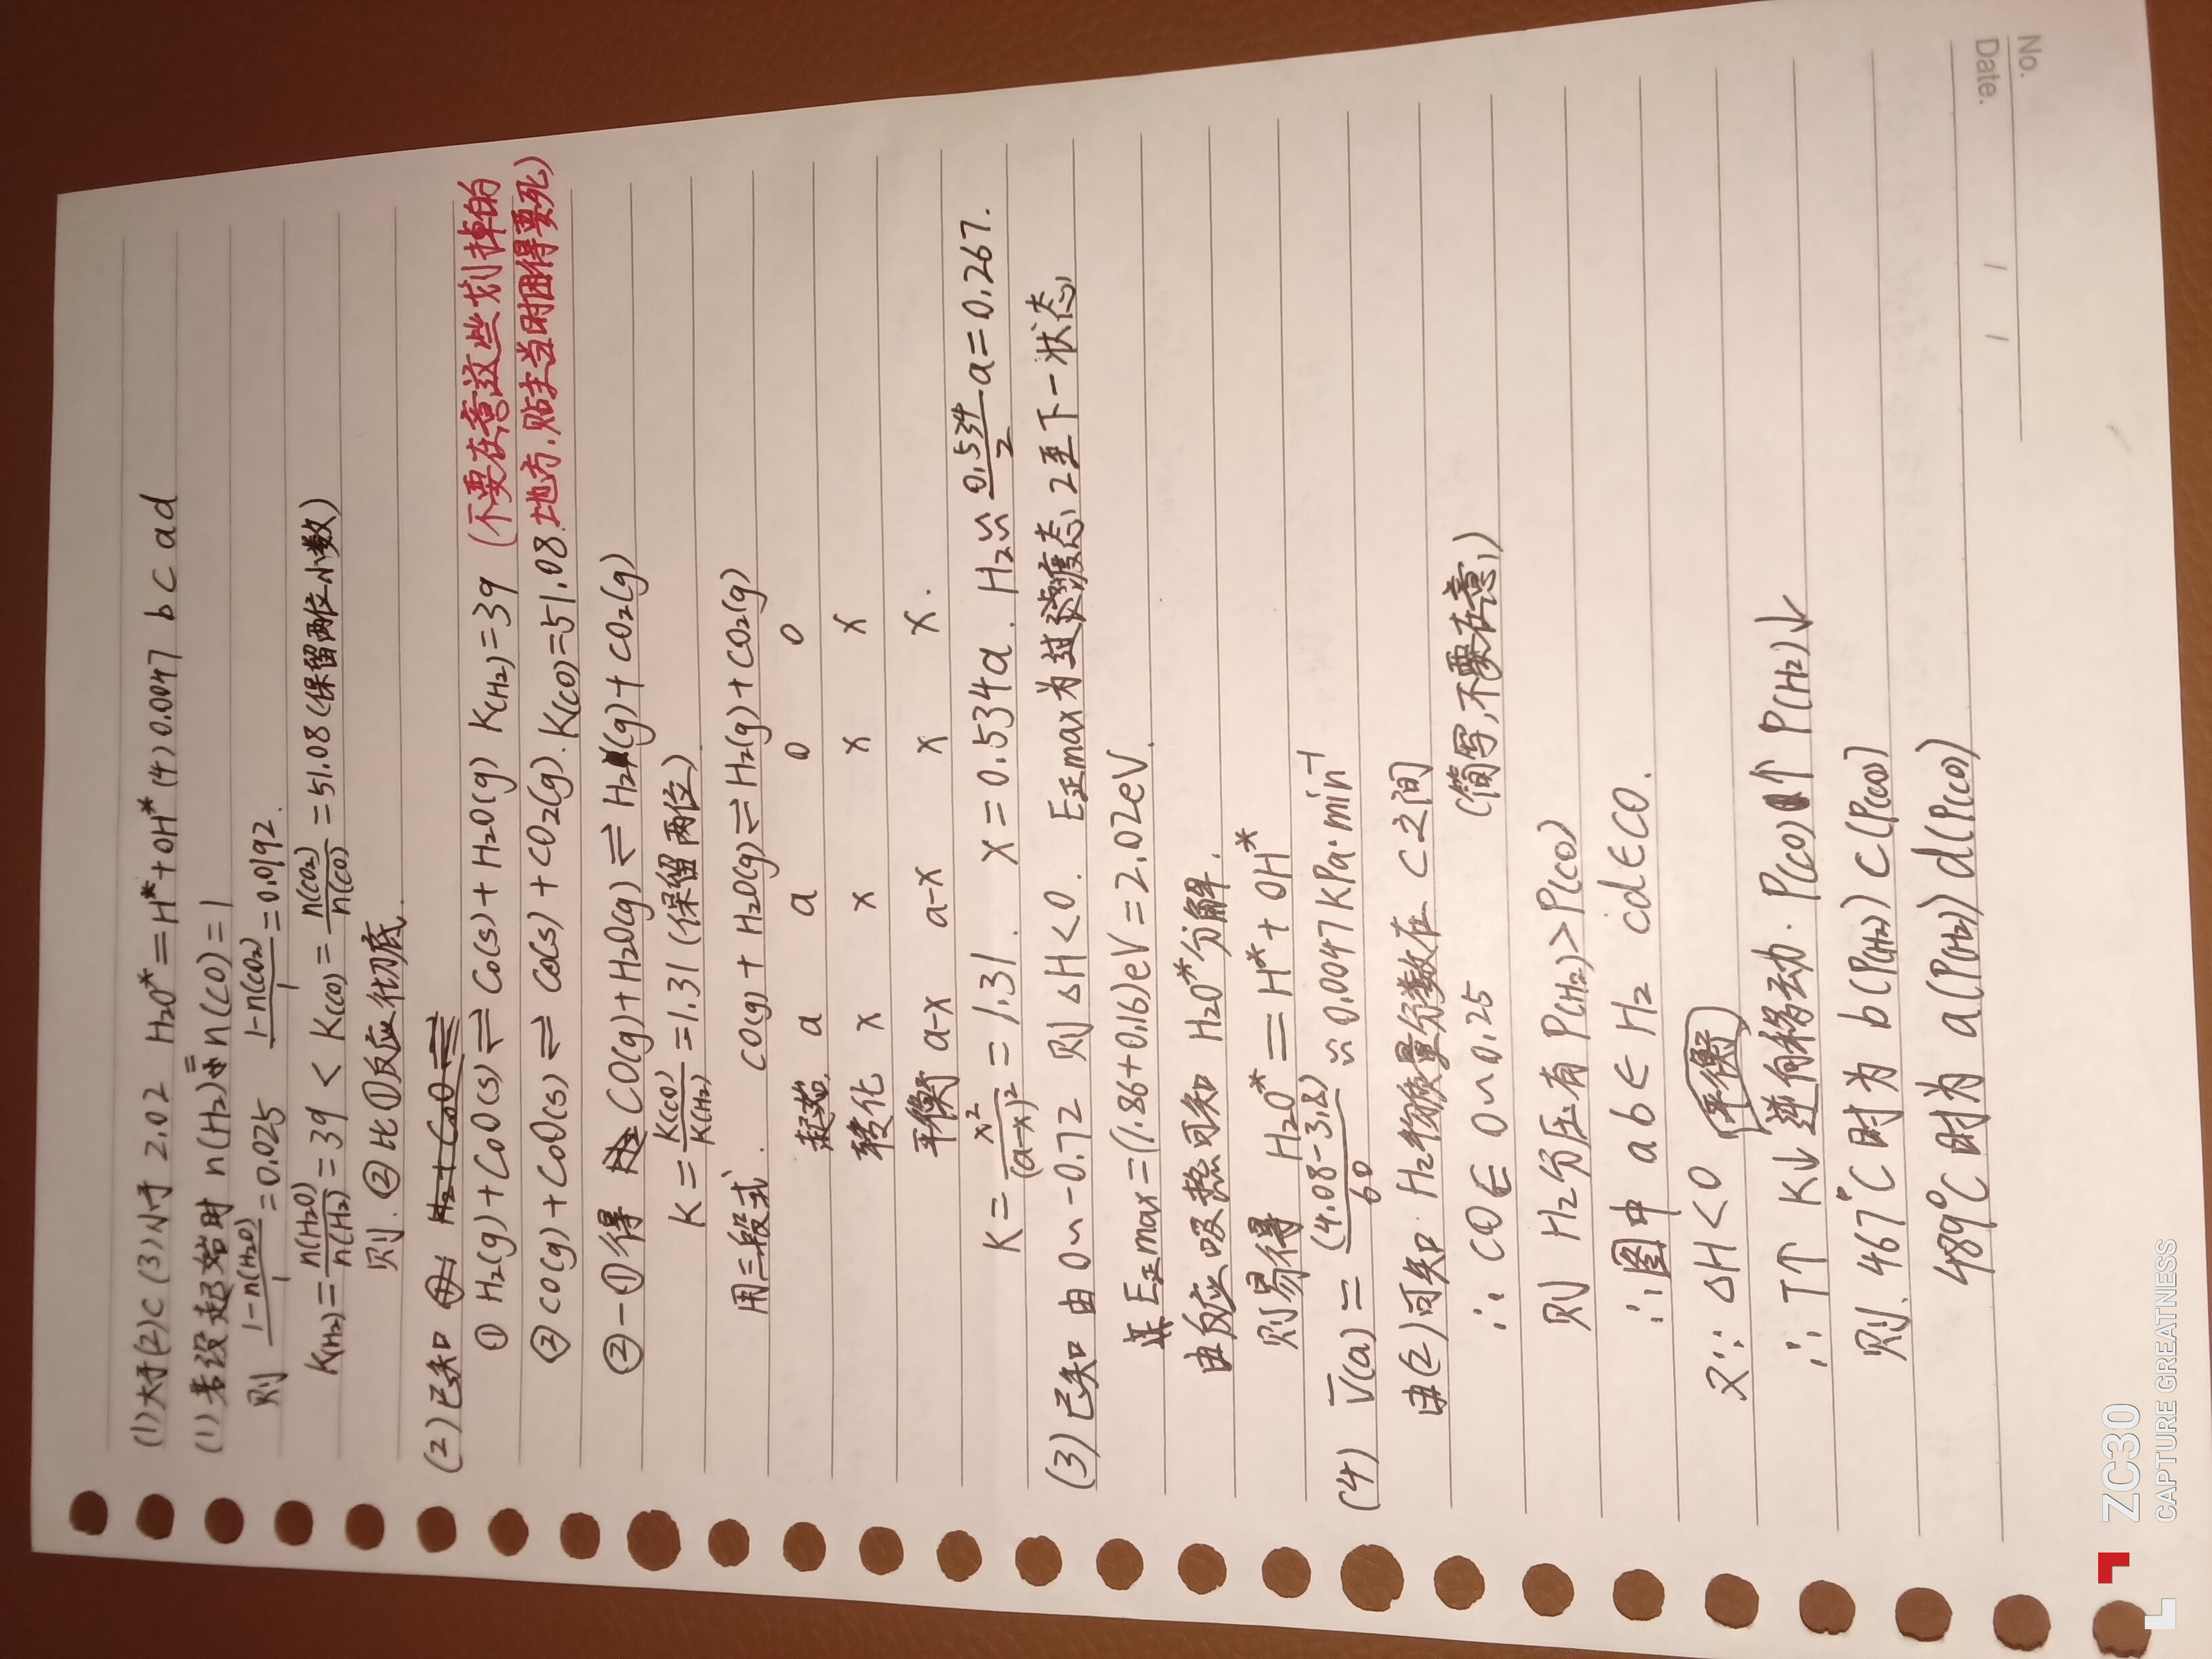 (1)大于(2)C (3)小于 2.02 H₂O*=H*+OH*(4)0.0047 b c a d
(1)若设起始时 n(H₂)=n(CO)=1
则 1-n(H₂O)/1=0.025 1-n(CO₂)/1=0.0192.
K(H₂)=n(H₂O)/n(H₂)=39 < K(CO)=n(CO₂)/n(CO)=51.08(保留两位小数)
则.②比①反应彻底.
(2)已知 H₂+CoO⇌
①H₂(g)+CoO(s)⇌Co(s)+H₂O(g) K(H₂)=39 (不要在意这些划掉的
②CO(g)+CoO(s)⇌Co(s)+CO₂(g).K(CO)=51.08.地方,贴主当时困得要死)
②-①得 CO(g)+H₂O(g)⇌H₂(g)+CO₂(g)
K=K(CO)/K(H₂)=1.31(保留两位)
用三段式. CO(g)+H₂O(g)⇌H₂(g)+CO₂(g)
起始. a a 0 0
转化 x x x x
平衡 a-x a-x x x.
K=x²/(a-x)²=1.31. x=0.534a. H₂≈0.534/2 a=0.267.
(3)已知由0~-0.72 则△H<0. E正max为过渡态2至下一状态
其E正max=(1.86+0.16)eV=2.02eV.
由反应吸热可知 H₂O*分解.
则易得 H₂O*=H*+OH*
(4) v̄(a)=(4.08-3.8)/60≈0.0047kPa·min⁻¹
由(2)可知 H₂物质量分数在 C之间
∴CO∈0~0.25 (简写,不要在意)
则 H₂分压有P(H₂)>P(CO)
∴图中 ab∈H₂ cd∈CO.
又∵△H<0 平衡
∴T↑ K↓ 逆向移动. P(CO)↑ P(H₂)↓
则.467°C时为 b(P(H₂)) c(P(CO))
489°C时为 a(P(H₂)) d(P(CO))
No.
Date. / /
ZC30
CAPTURE GREATNESS